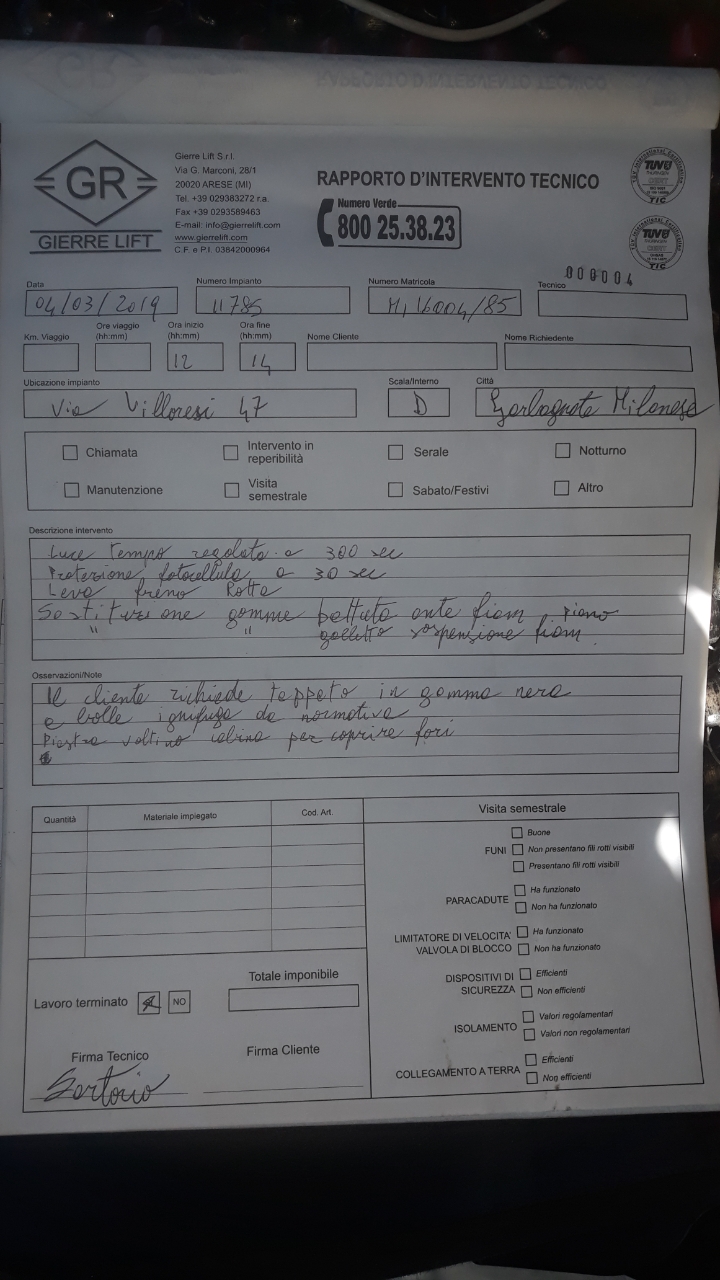 GR
GIERRE LIFT
Gierre Lift S.r.l.
Via G. Marconi, 28/1
20020 ARESE (MI)
Tel. +39 029383272 r.a.
Fax +39 0293589463
E-mail: info@gierrelift.com
www.gierrelift.com
C.F. e P.I. 03642000964
RAPPORTO D'INTERVENTO TECNICO
Numero Verde
800 25.38.23
TUV
TIC
TUV
TIC
000004
Data
04/03/2019
Numero Impianto
11785
Numero Matricola
16004/85
Tecnico
Km. Viaggio
Ore viaggio (hh:mm)
Ora inizio (hh:mm)
12
Ora fine (hh:mm)
14
Nome Cliente
Nome Richiedente
Ubicazione impianto
Via Villoresi 47
Scala/Interno
D
Città
Garbagnate Milanese
Chiamata
Intervento in reperibilità
Serale
Notturno
Manutenzione
Visita semestrale
Sabato/Festivi
Altro
Descrizione intervento
Luce Tempo regolato a 300 sec
Protezione fotocellula a 30 sec
Leva freno Rotta
Sostituzione gomme battuta ante piano
" " sospensione
Osservazioni/Note
Il cliente richiede tappeto in gomma nera
e bolle ignifuga da normativa
Piastra cabina per coprire fori
Quantità Materiale impiegato Cod. Art.
Visita semestrale
FUNI
Buone
Non presentano fili rotti visibili
Presentano fili rotti visibili
PARACADUTE
Ha funzionato
Non ha funzionato
LIMITATORE DI VELOCITA'
VALVOLA DI BLOCCO
Ha funzionato
Non ha funzionato
DISPOSITIVI DI SICUREZZA
Efficienti
Non efficienti
ISOLAMENTO
Valori regolamentari
Valori non regolamentari
COLLEGAMENTO A TERRA
Efficienti
Non efficienti
Lavoro terminato NO
Totale imponibile
Firma Tecnico
Sartorio
Firma Cliente